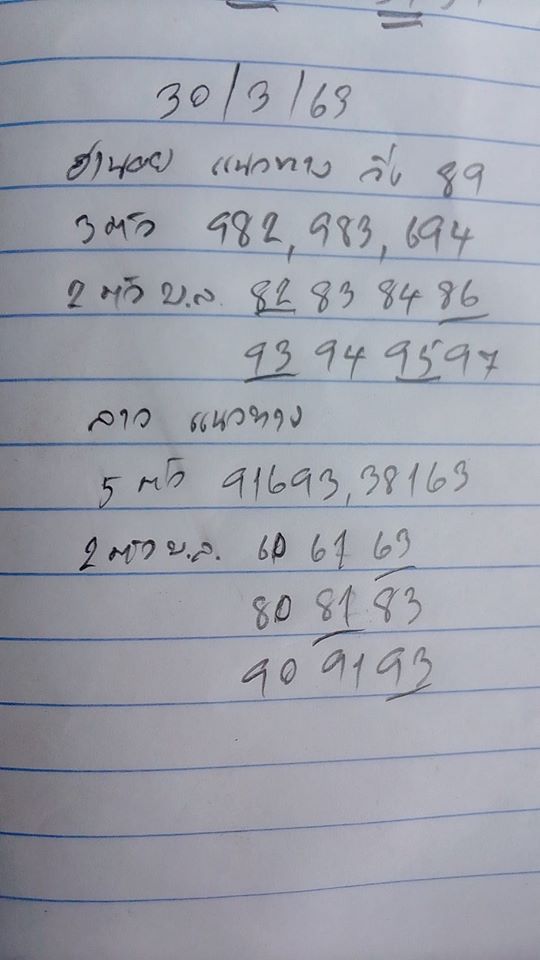 30/3/63
ฮานอย แนวทาง วิ่ง 89
3 ตัว 982, 983, 694
2 ตัว บ.ล. 82 83 84 86
93 94 95 97
ลาว แนวทาง
5 ตัว 91693, 38163
2 ตัว บ.ล. 60 61 63
80 81 83
90 91 93